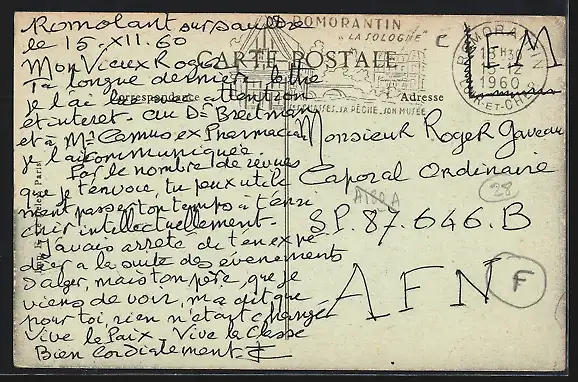 Romorant sur Sauldre
le 15-XII.60
Mon Vieux Roger
Ta longue dernière lettre
je l'ai lue avec attention
et interet. au Dr Breitman
et à Mr Camus ex Pharmacien
je l'ai communiquée.
Par le nombre de revues
que je t'envoie, tu peux utile
ment passer ton temps à t'enri
chir intellectuellement.
J'avais arrêté de t'en expé
dier a la suite des évenements
d'alger, mais ton père, que je
viens de voir, m'a dit que
pour toi, rien n'etait changé
Vive le Paix - Vive la Classe
Bien Cordialement
ROMORANTIN
"LA SOLOGNE"
SES CHASSES, SA PÊCHE, SON MUSÉE
CARTE POSTALE
Correspondance
Adresse
ROMORANTIN
18H30
12
1960
LOIR-ET-CHER
F M
Monsieur Roger Gaveau
Caporal Ordinaire
28
S.P. 87.646.B
AFN
F
Paris